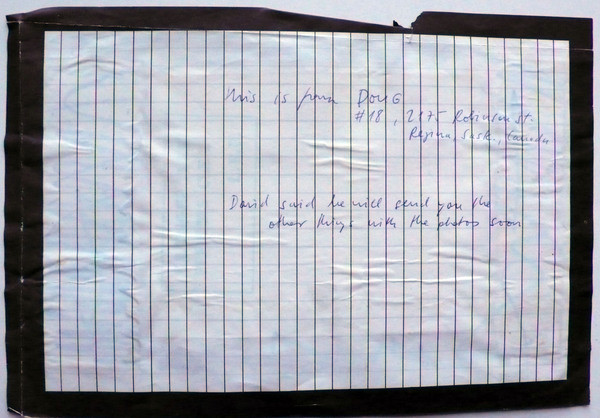 This is from DOUG
#18, 2175 Robinson St.
Regina, Sask., Canada
David said he will send you the
other things with the photos soon